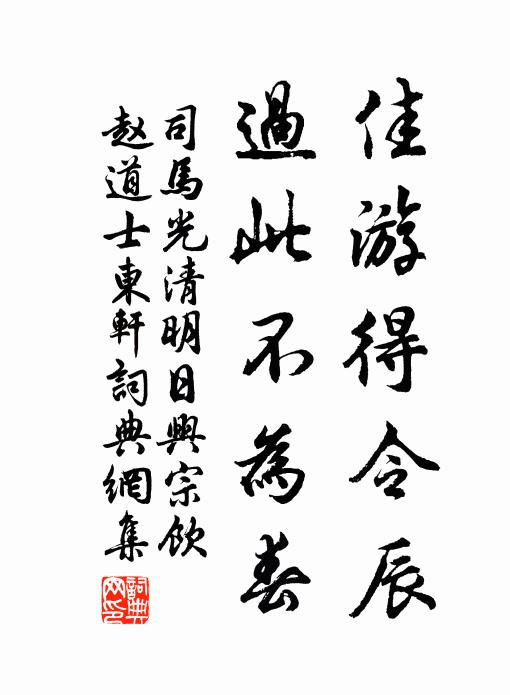 佳游得令辰
過此不為春
司馬光清明日興宗飲
赵道士東軒詞典網集
詞典網印